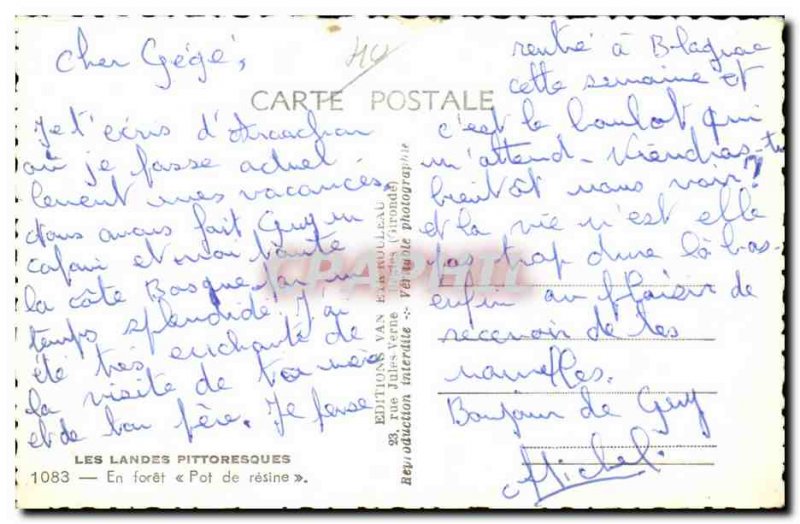 cher Gégé,
CARTE POSTALE
Je t'écris d'Arcachon
où je passe actuel
lement mes vacances.
Nous avons fait Guy un
copain et moi toute
la côte Basque par un
temps splendide. J'ai
été très enchanté de
la visite de ta mère
et de ton père. Je pense
rentré à Blagnac
cette semaine et
c'est le boulot qui
m'attend. Viendras-tu
bientôt nous voir?
et la vie n'est elle
pas trop dure là bas-
enfin au plaisir de
recevoir de tes
nouvelles.
Bonjour de Guy
Michel.
EDITIONS VAN
23, rue Jules-Verne (Gironde)
Reproduction interdite -:- Véritable photographie
CPAPHIL
LES LANDES PITTORESQUES
1083 — En forêt « Pot de résine ».